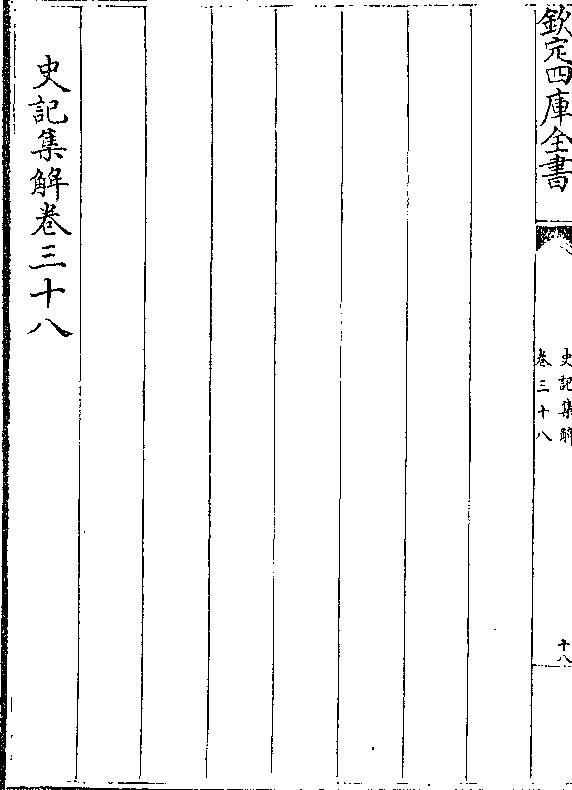 欽定四庫全書
史記集解
卷三十八
十八
史記集解卷三十八